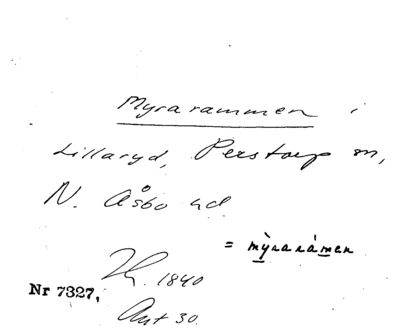 Myrarammen i
Lillaryd, Perstorp sn,
N. Åsbo hd.
= mỳrarámen
1840
Nr 7327,
Ant 30.